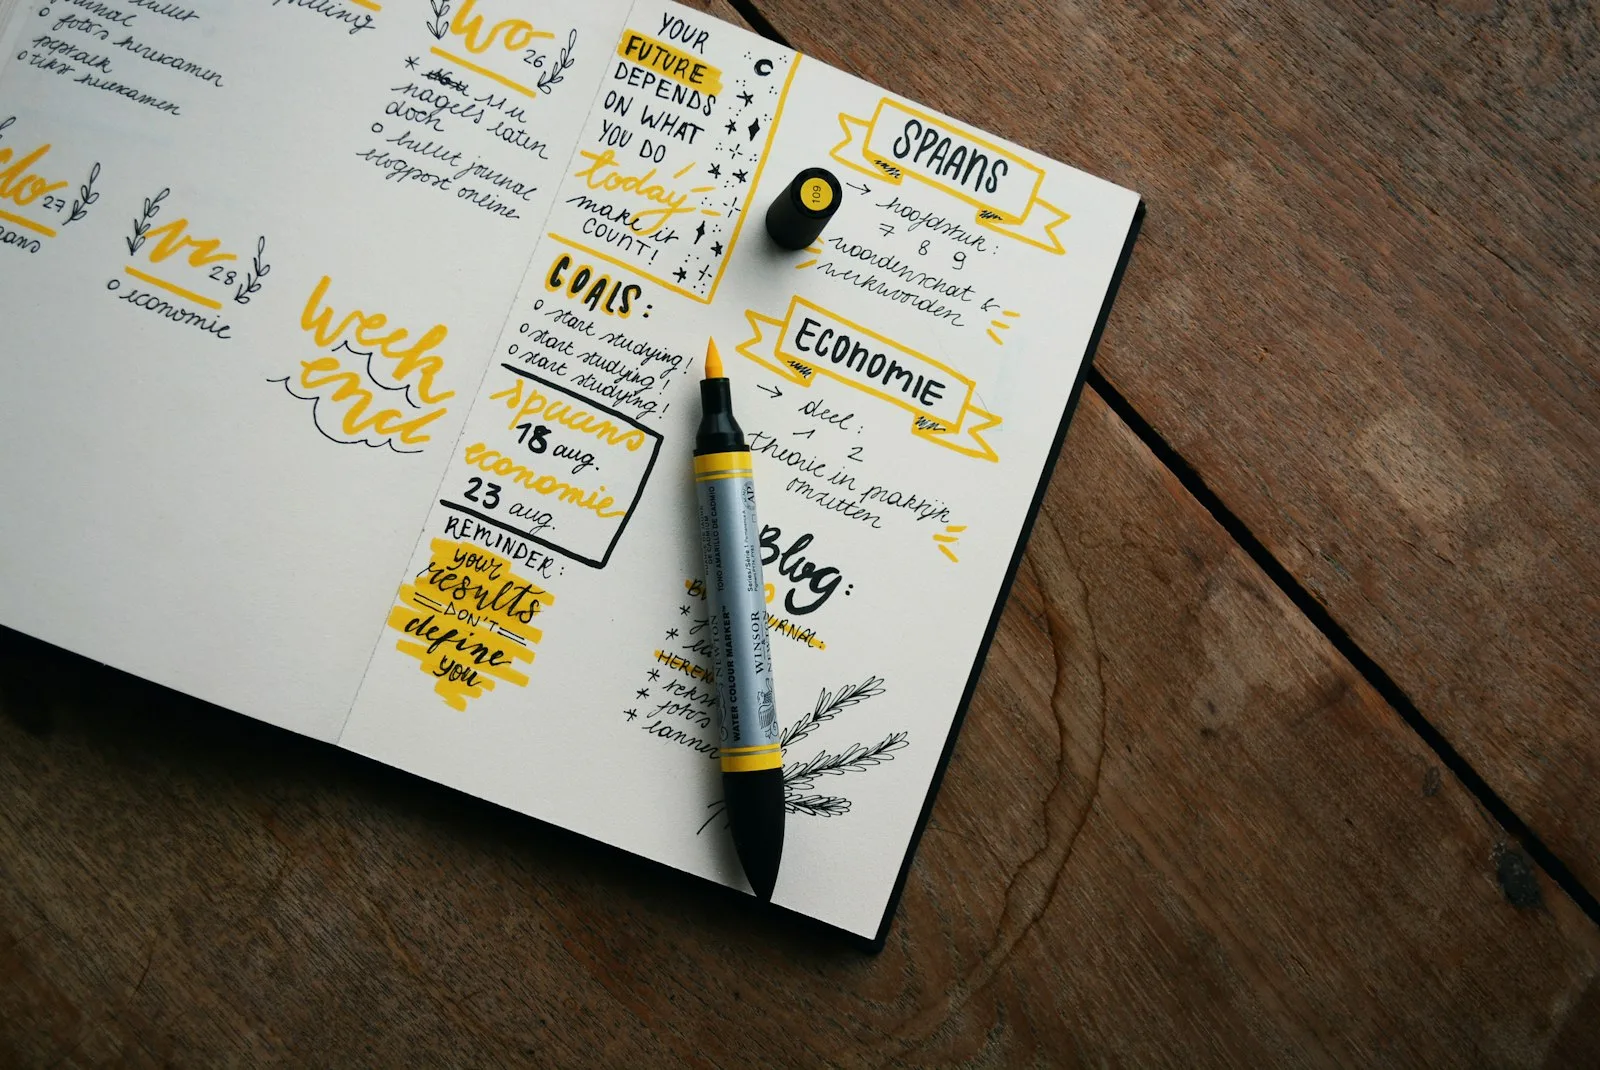 bullet
journal
o foto's herexamen
peptalk
o tekst herexamen
wo
26
* 11 u
nagels laten
doen
o bullet journal
blogpost online
do
27
vr
28
o economie
week
end
YOUR
FUTURE
DEPENDS
ON WHAT
YOU DO
today
make it
COUNT!
GOALS:
o start studying!
o start studying!
o start studying!
spaans
18 aug.
economie
23 aug.
REMINDER:
your
results
DON'T
define
you
109
SPAANS
→ hoofdstuk:
7 8 9
woordenschat &
werkwoorden
ECONOMIE
→ deel:
1 2
theorie in praktijk
omzetten
Blog:
URNAL:
HEREX
* tekst
* foto's
*
WATER COLOUR MARKER™
WINSOR
NEWTON
Series/Série 1
AP